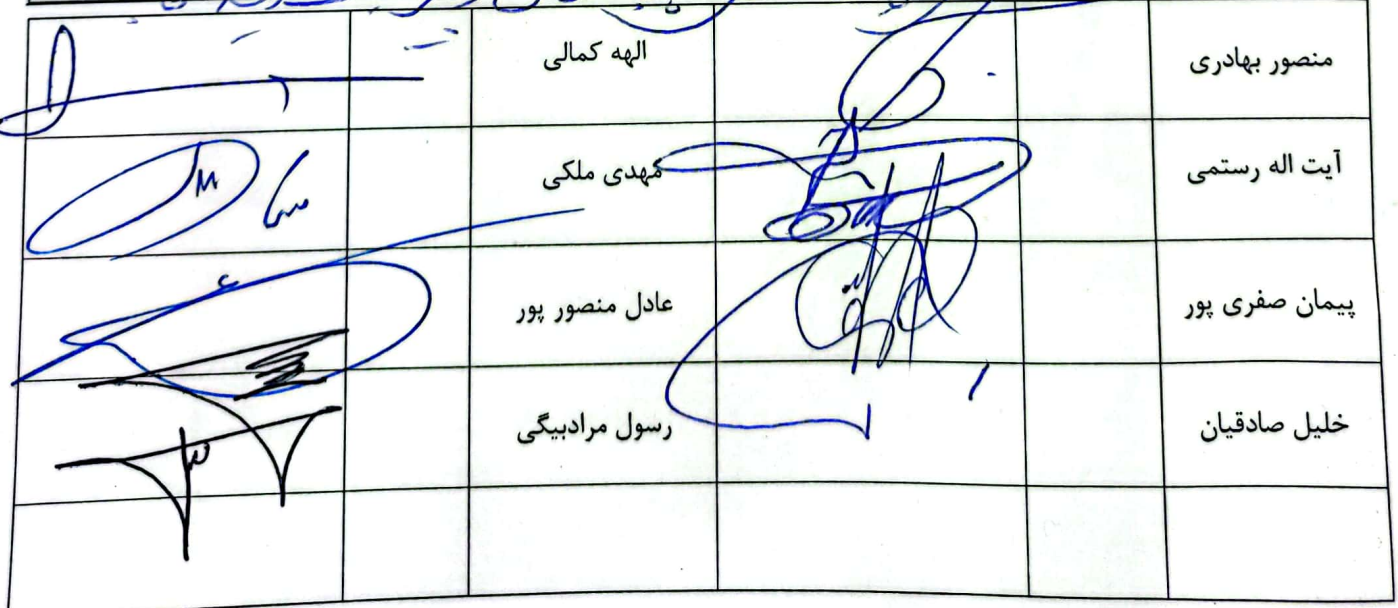 منصور بهادری الهه کمالی
آیت اله رستمی مهدی ملکی
پیمان صفری پور عادل منصور پور
خلیل صادقیان رسول مرادبیگی